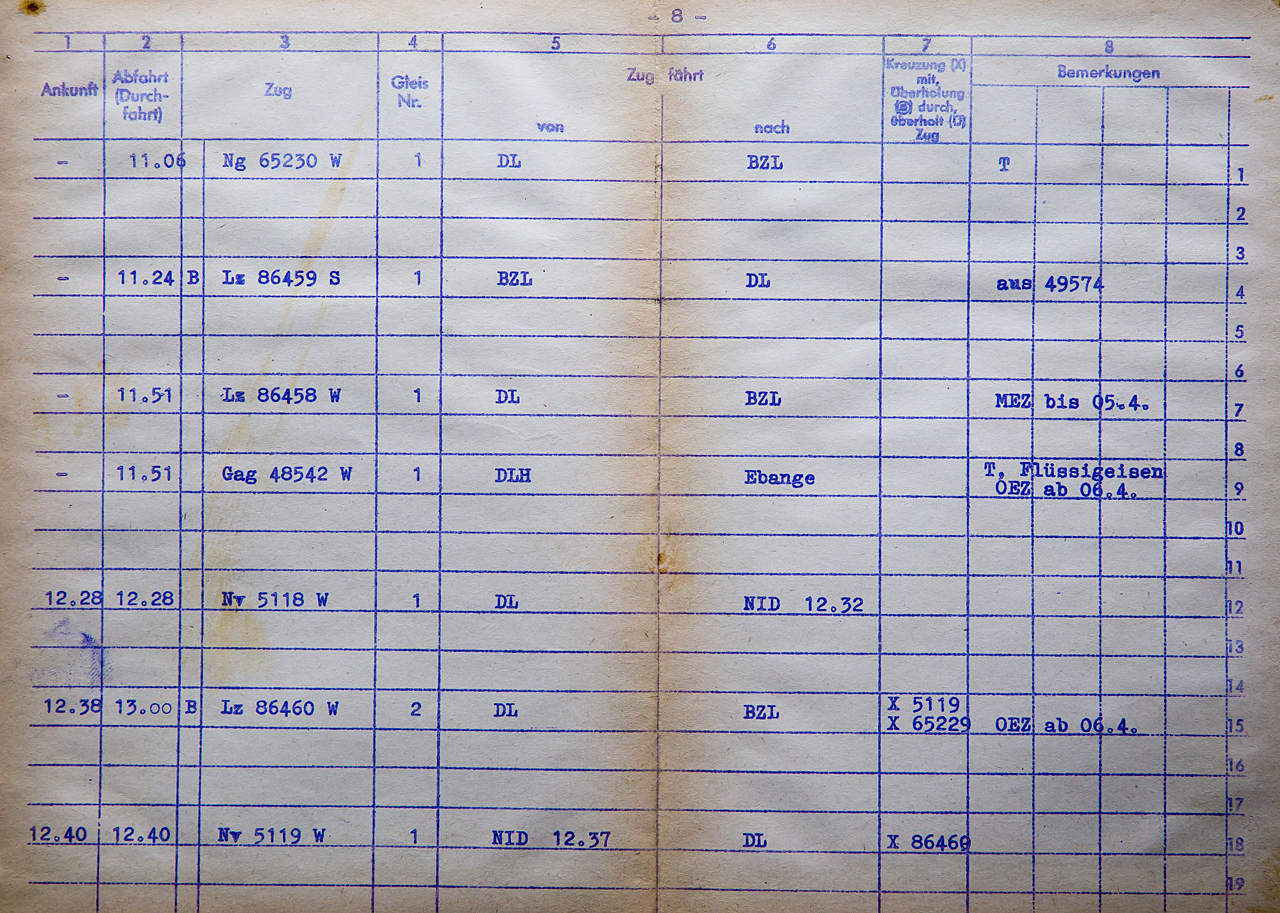 - 8 -
1 2 3 4 5 6 7 8
Ankunft
Abfahrt
(Durch-
fahrt)
Zug
Gleis
Nr.
Zug fährt
von
nach
Kreuzung (X)
mit,
Überholung
durch,
überholt (Ü)
Zug
Bemerkungen
- 11.06 Ng 65230 W 1 DL BZL T 1
2
3
- 11.24 B Lz 86459 S 1 BZL DL aus 49574 4
5
6
- 11.51 Lz 86458 W 1 DL BZL MEZ bis 05.4. 7
8
- 11.51 Gag 48542 W 1 DLH Ebange T, Flüssigeisen
OEZ ab 06.4. 9
10
11
12.28 12.28 Nv 5118 W 1 DL NID 12.32 12
13
14
12.38 13.00 B Lz 86460 W 2 DL BZL X 5119
X 65229 OEZ ab 06.4. 15
16
17
12.40 12.40 Nv 5119 W 1 NID 12.37 DL X 86460 18
19